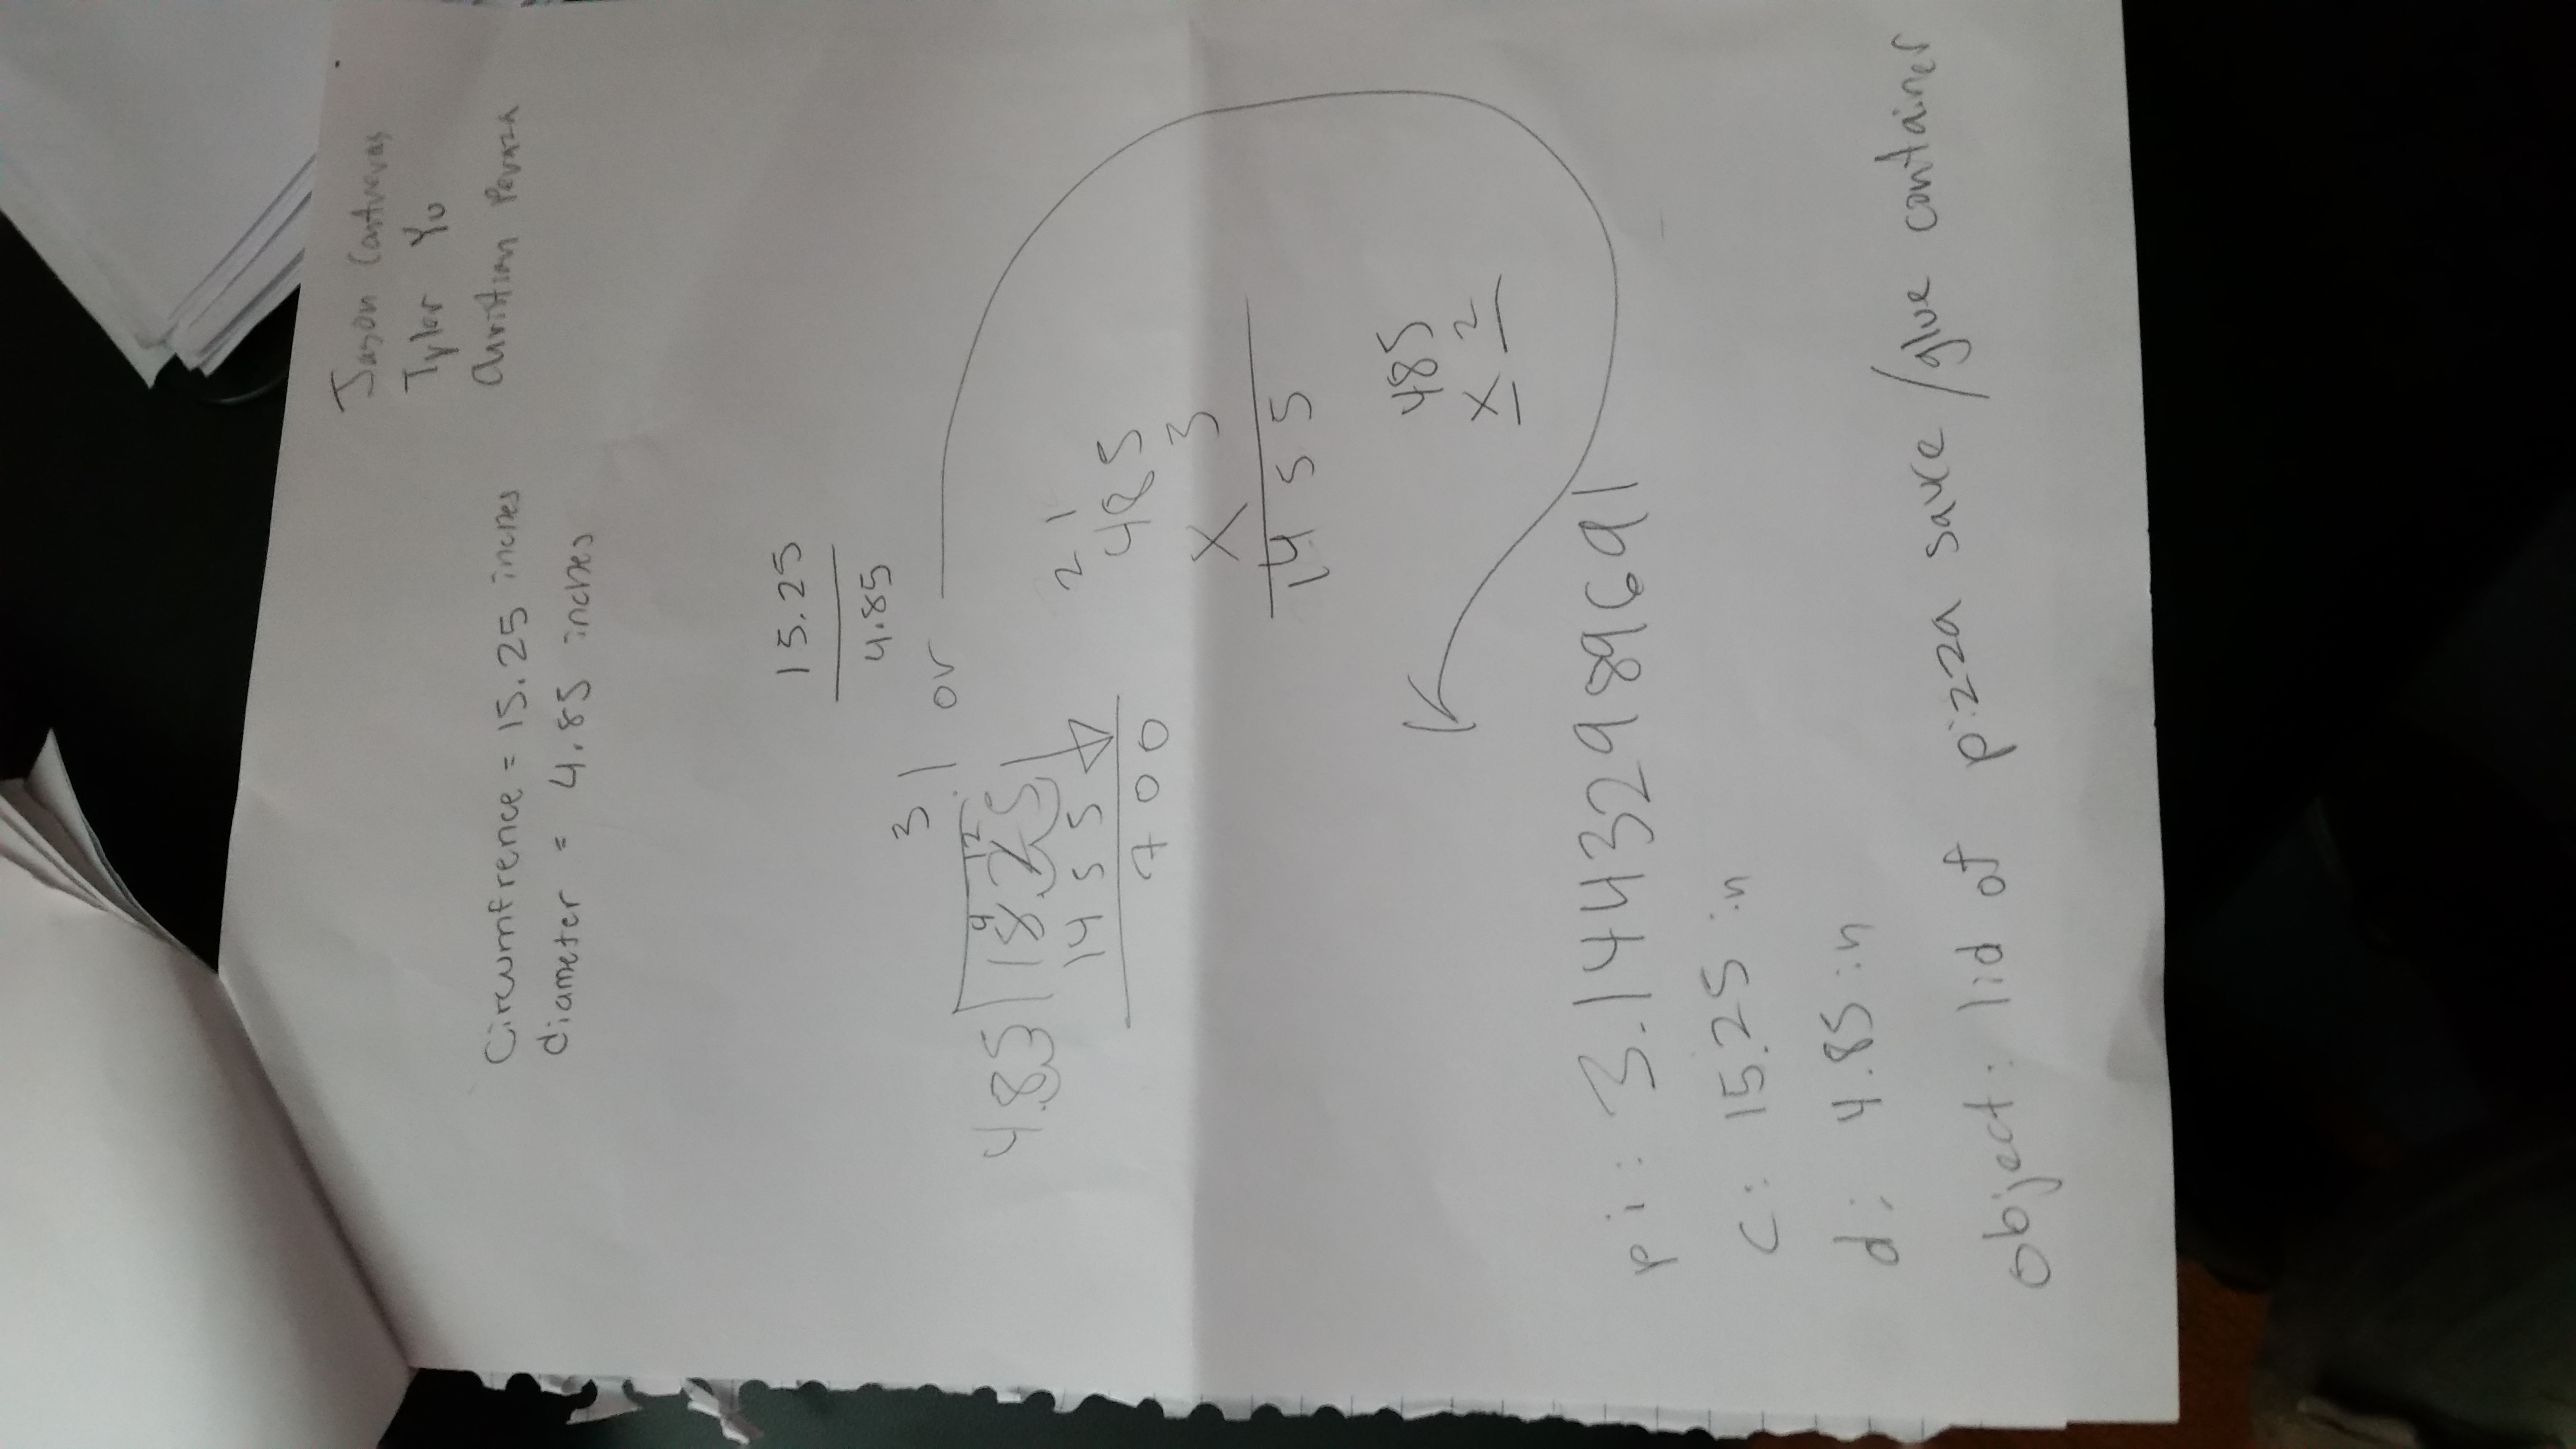 Jason Contreras
Tyler Yu
Circumfrence = 15.25 inches
diameter = 4.85 inches
15.25
4.85
3 or
4.85 15.25
4 12
1455
700
2 1
485
X 3
1455
485
X 2
pi: 3.14432989691
C: 15.25 in
d: 4.85 in
Object: lid of pizza sauce/glue container